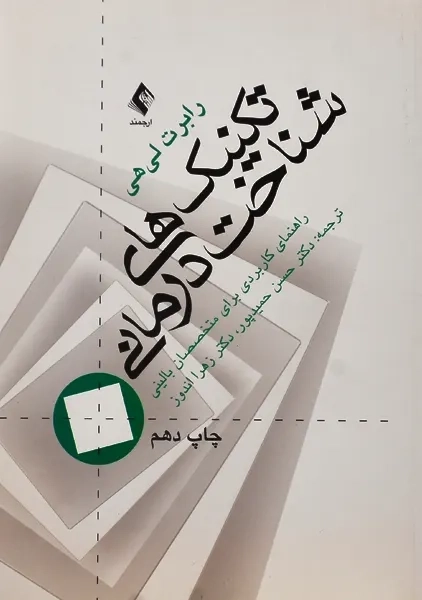 ارجمند
رابرت لی هی
تکنیک های
شناخت درمانی
راهنمای کاربردی برای متخصصان بالینی
ترجمه: دکتر حسن حمیدپور، دکتر زهرا اندوز
چاپ دهم